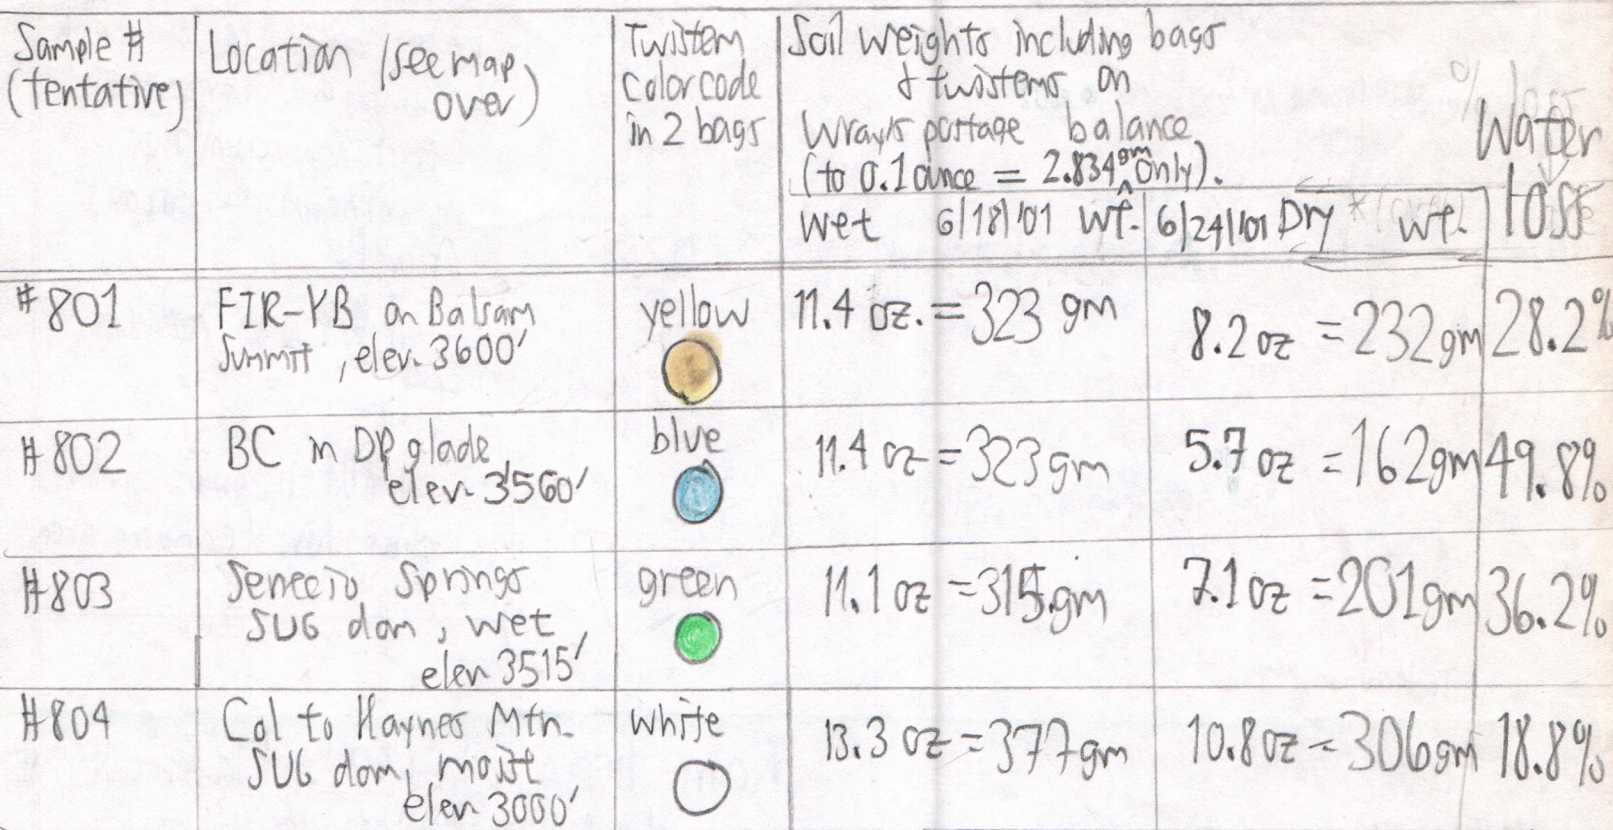 Sample #
(tentative)
Location (see map
over)
Twistem
Color code
in 2 bags
Soil weights including bags
& twistems on
Wray's postage balance
(to 0.1 ounce = 2.834 gm only).
Wet 6/18/'01 Wt.
6/24/'01 Dry Wt.
Water
loss
#801
FIR-YB on Balsam
Summit, elev. 3600'
yellow
11.4 oz. = 323 gm
8.2 oz = 232 gm
28.2%
#802
BC in DP glade
elev. 3560'
blue
11.4 oz = 323 gm
5.7 oz = 162 gm
49.8%
#803
Senecio Springs
SUG dom, wet,
elev 3515'
green
11.1 oz = 315 gm
7.1 oz = 201 gm
36.2%
#804
Col to Haynes Mtn.
SUG dom, moist
elev 3000'
white
13.3 oz = 377 gm
10.8 oz = 306 gm
18.8%